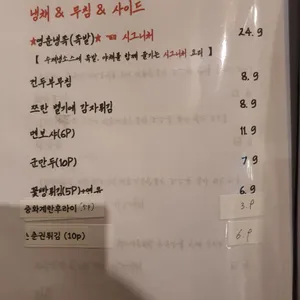 냉채 & 무침 & 사이드
★명운냉족(족발)★ ☜ 시그니처 24.9
[ 수제냉소스에 족발, 야채를 함께 즐기는 시그니처 요리 ]
건두부무침 8.9
쯔란 벌키에 감자튀김 8.9
멘보샤(6P) 11.9
군만두(10P) 7.9
꽃빵튀김(5P)+연유 6.9
중화계란후라이 (5P) 3.9
춘권튀김 (10p) 6.9